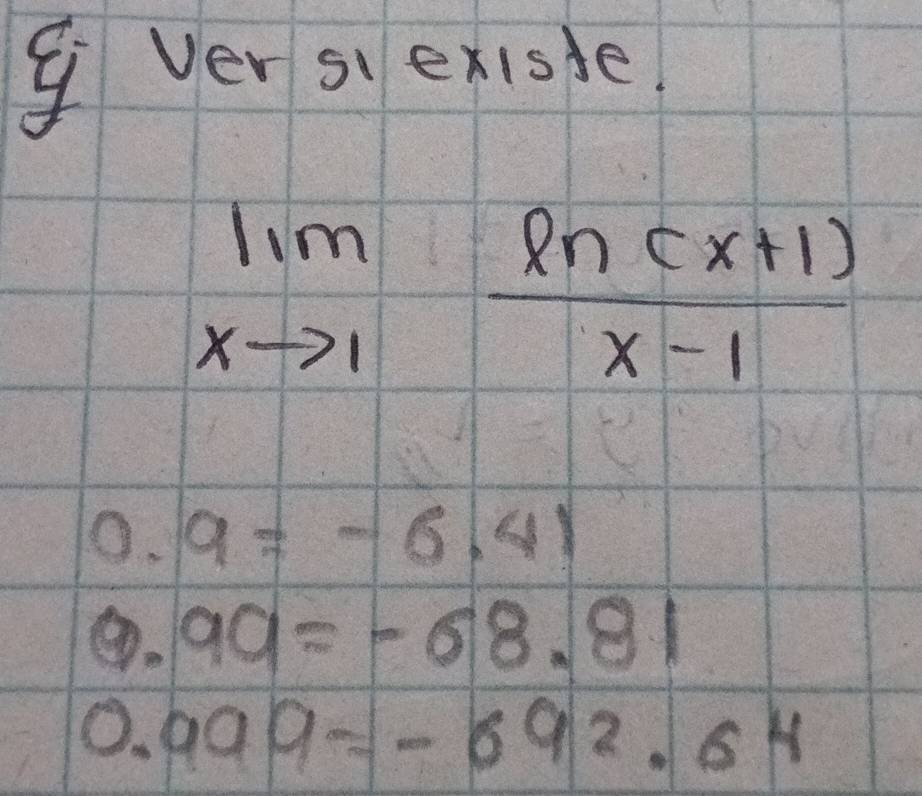 Ej Ver si existe.
lim ln(x+1)
x→1 x-1
0.9 = -6.41
0.99 = -68.81
0.999 = -692.64